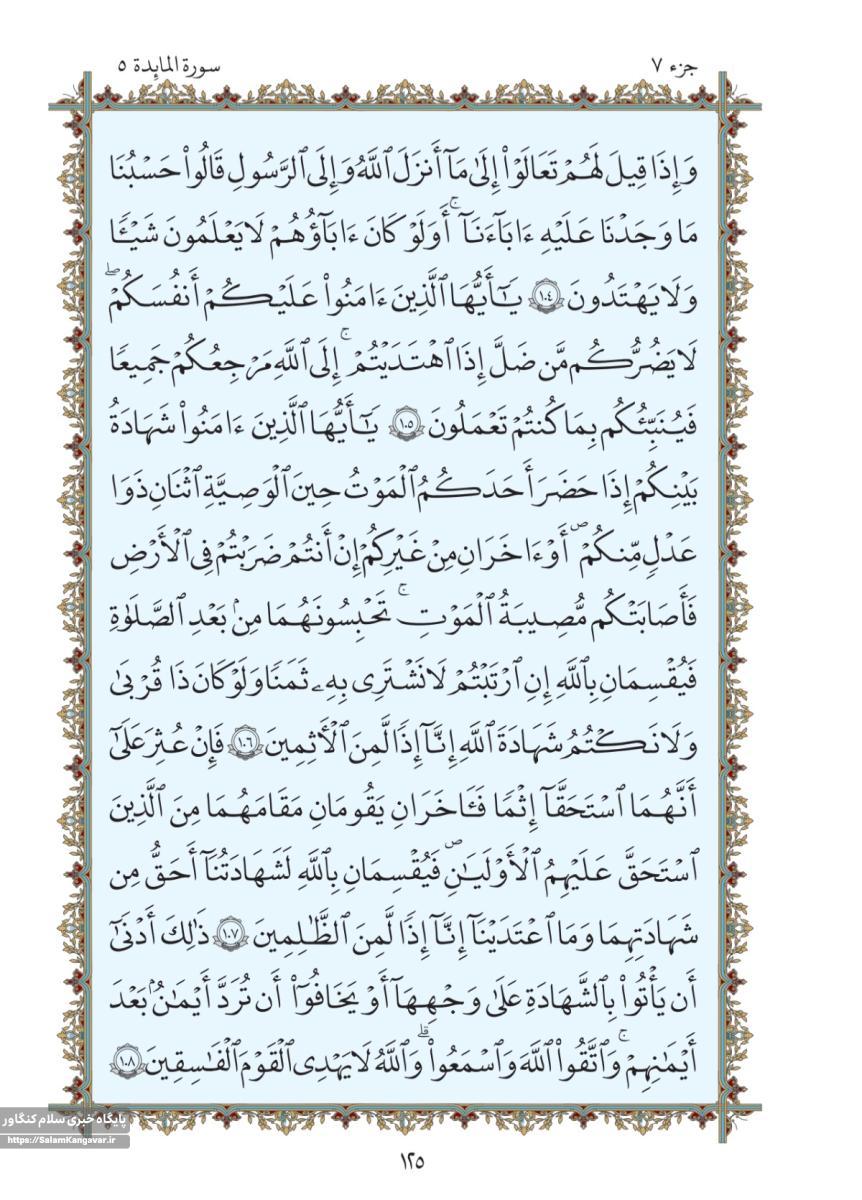 جزء ٧
سورة المائدة ٥
وَإِذَا قِيلَ لَهُمْ تَعَالَوْا۟ إِلَىٰ مَآ أَنزَلَ ٱللَّهُ وَإِلَى ٱلرَّسُولِ قَالُوا۟ حَسْبُنَا
مَا وَجَدْنَا عَلَيْهِ ءَابَآءَنَآ ۚ أَوَلَوْ كَانَ ءَابَآؤُهُمْ لَا يَعْلَمُونَ شَيْـًٔا
وَلَا يَهْتَدُونَ ١٠٤ يَـٰٓأَيُّهَا ٱلَّذِينَ ءَامَنُوا۟ عَلَيْكُمْ أَنفُسَكُمْ ۖ
لَا يَضُرُّكُم مَّن ضَلَّ إِذَا ٱهْتَدَيْتُمْ ۚ إِلَى ٱللَّهِ مَرْجِعُكُمْ جَمِيعًا
فَيُنَبِّئُكُم بِمَا كُنتُمْ تَعْمَلُونَ ١٠٥ يَـٰٓأَيُّهَا ٱلَّذِينَ ءَامَنُوا۟ شَهَادَةُ
بَيْنِكُمْ إِذَا حَضَرَ أَحَدَكُمُ ٱلْمَوْتُ حِينَ ٱلْوَصِيَّةِ ٱثْنَانِ ذَوَا
عَدْلٍ مِّنكُمْ ۖ أَوْ ءَاخَرَانِ مِنْ غَيْرِكُمْ إِنْ أَنتُمْ ضَرَبْتُمْ فِى ٱلْأَرْضِ
فَأَصَابَتْكُم مُّصِيبَةُ ٱلْمَوْتِ ۚ تَحْبِسُونَهُمَا مِنۢ بَعْدِ ٱلصَّلَوٰةِ
فَيُقْسِمَانِ بِٱللَّهِ إِنِ ٱرْتَبْتُمْ لَا نَشْتَرِى بِهِۦ ثَمَنًا وَلَوْ كَانَ ذَا قُرْبَىٰ
وَلَا نَكْتُمُ شَهَادَةَ ٱللَّهِ إِنَّآ إِذًا لَّمِنَ ٱلْـَٔاثِمِينَ ١٠٦ فَإِنْ عُثِرَ عَلَىٰٓ
أَنَّهُمَا ٱسْتَحَقَّآ إِثْمًا فَـَٔاخَرَانِ يَقُومَانِ مَقَامَهُمَا مِنَ ٱلَّذِينَ
ٱسْتَحَقَّ عَلَيْهِمُ ٱلْأَوْلَيَـٰنِ ۖ فَيُقْسِمَانِ بِٱللَّهِ لَشَهَادَتُنَآ أَحَقُّ مِن
شَهَادَتِهِمَا وَمَا ٱعْتَدَيْنَآ إِنَّآ إِذًا لَّمِنَ ٱلظَّـٰلِمِينَ ١٠٧ ذَٰلِكَ أَدْنَىٰٓ
أَن يَأْتُوا۟ بِٱلشَّهَادَةِ عَلَىٰ وَجْهِهَآ أَوْ يَخَافُوٓا۟ أَن تُرَدَّ أَيْمَـٰنٌۢ بَعْدَ
أَيْمَـٰنِهِمْ ۗ وَٱتَّقُوا۟ ٱللَّهَ وَٱسْمَعُوا۟ ۗ وَٱللَّهُ لَا يَهْدِى ٱلْقَوْمَ ٱلْفَـٰسِقِينَ ١٠٨
پایگاه خبری سلام کنگاور
https://SalamKangavar.ir
١٢٥